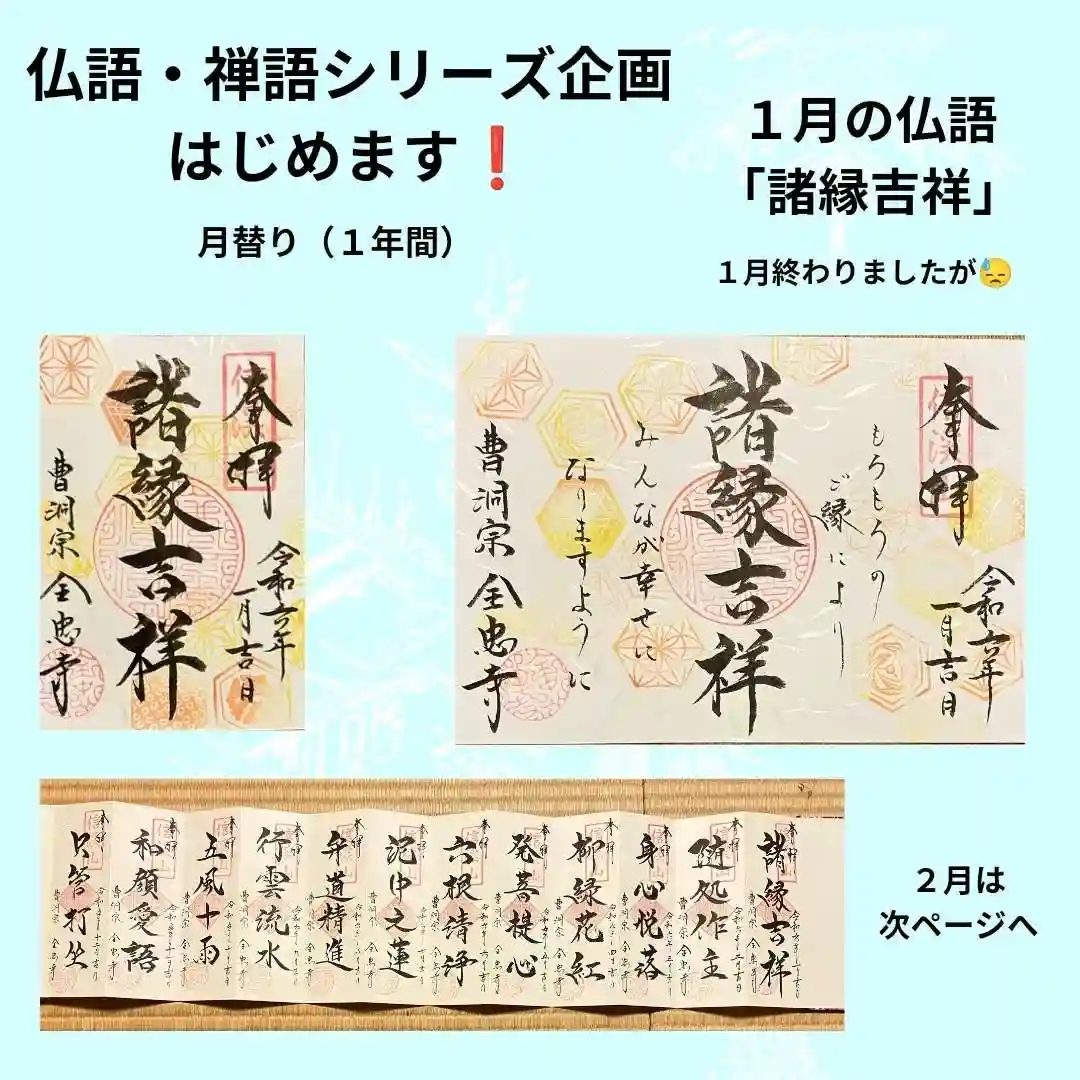 仏語・禅語シリーズ企画
はじめます❗
月替り（１年間）
１月の仏語
「諸縁吉祥」
１月終わりましたが😓
奉拝
令和六年
一月吉日
諸縁吉祥
曹洞宗 全忠寺
奉拝
令和六年
一月吉日
もろもろの
ご縁により
諸縁吉祥
みんなが幸せに
なりますように
曹洞宗 全忠寺
諸縁吉祥
随処作主
身心脱落
柳緑花紅
発菩提心
六根清浄
泥中之蓮
弁道精進
行雲流水
五風十雨
和顔愛語
只管打坐
２月は
次ページへ